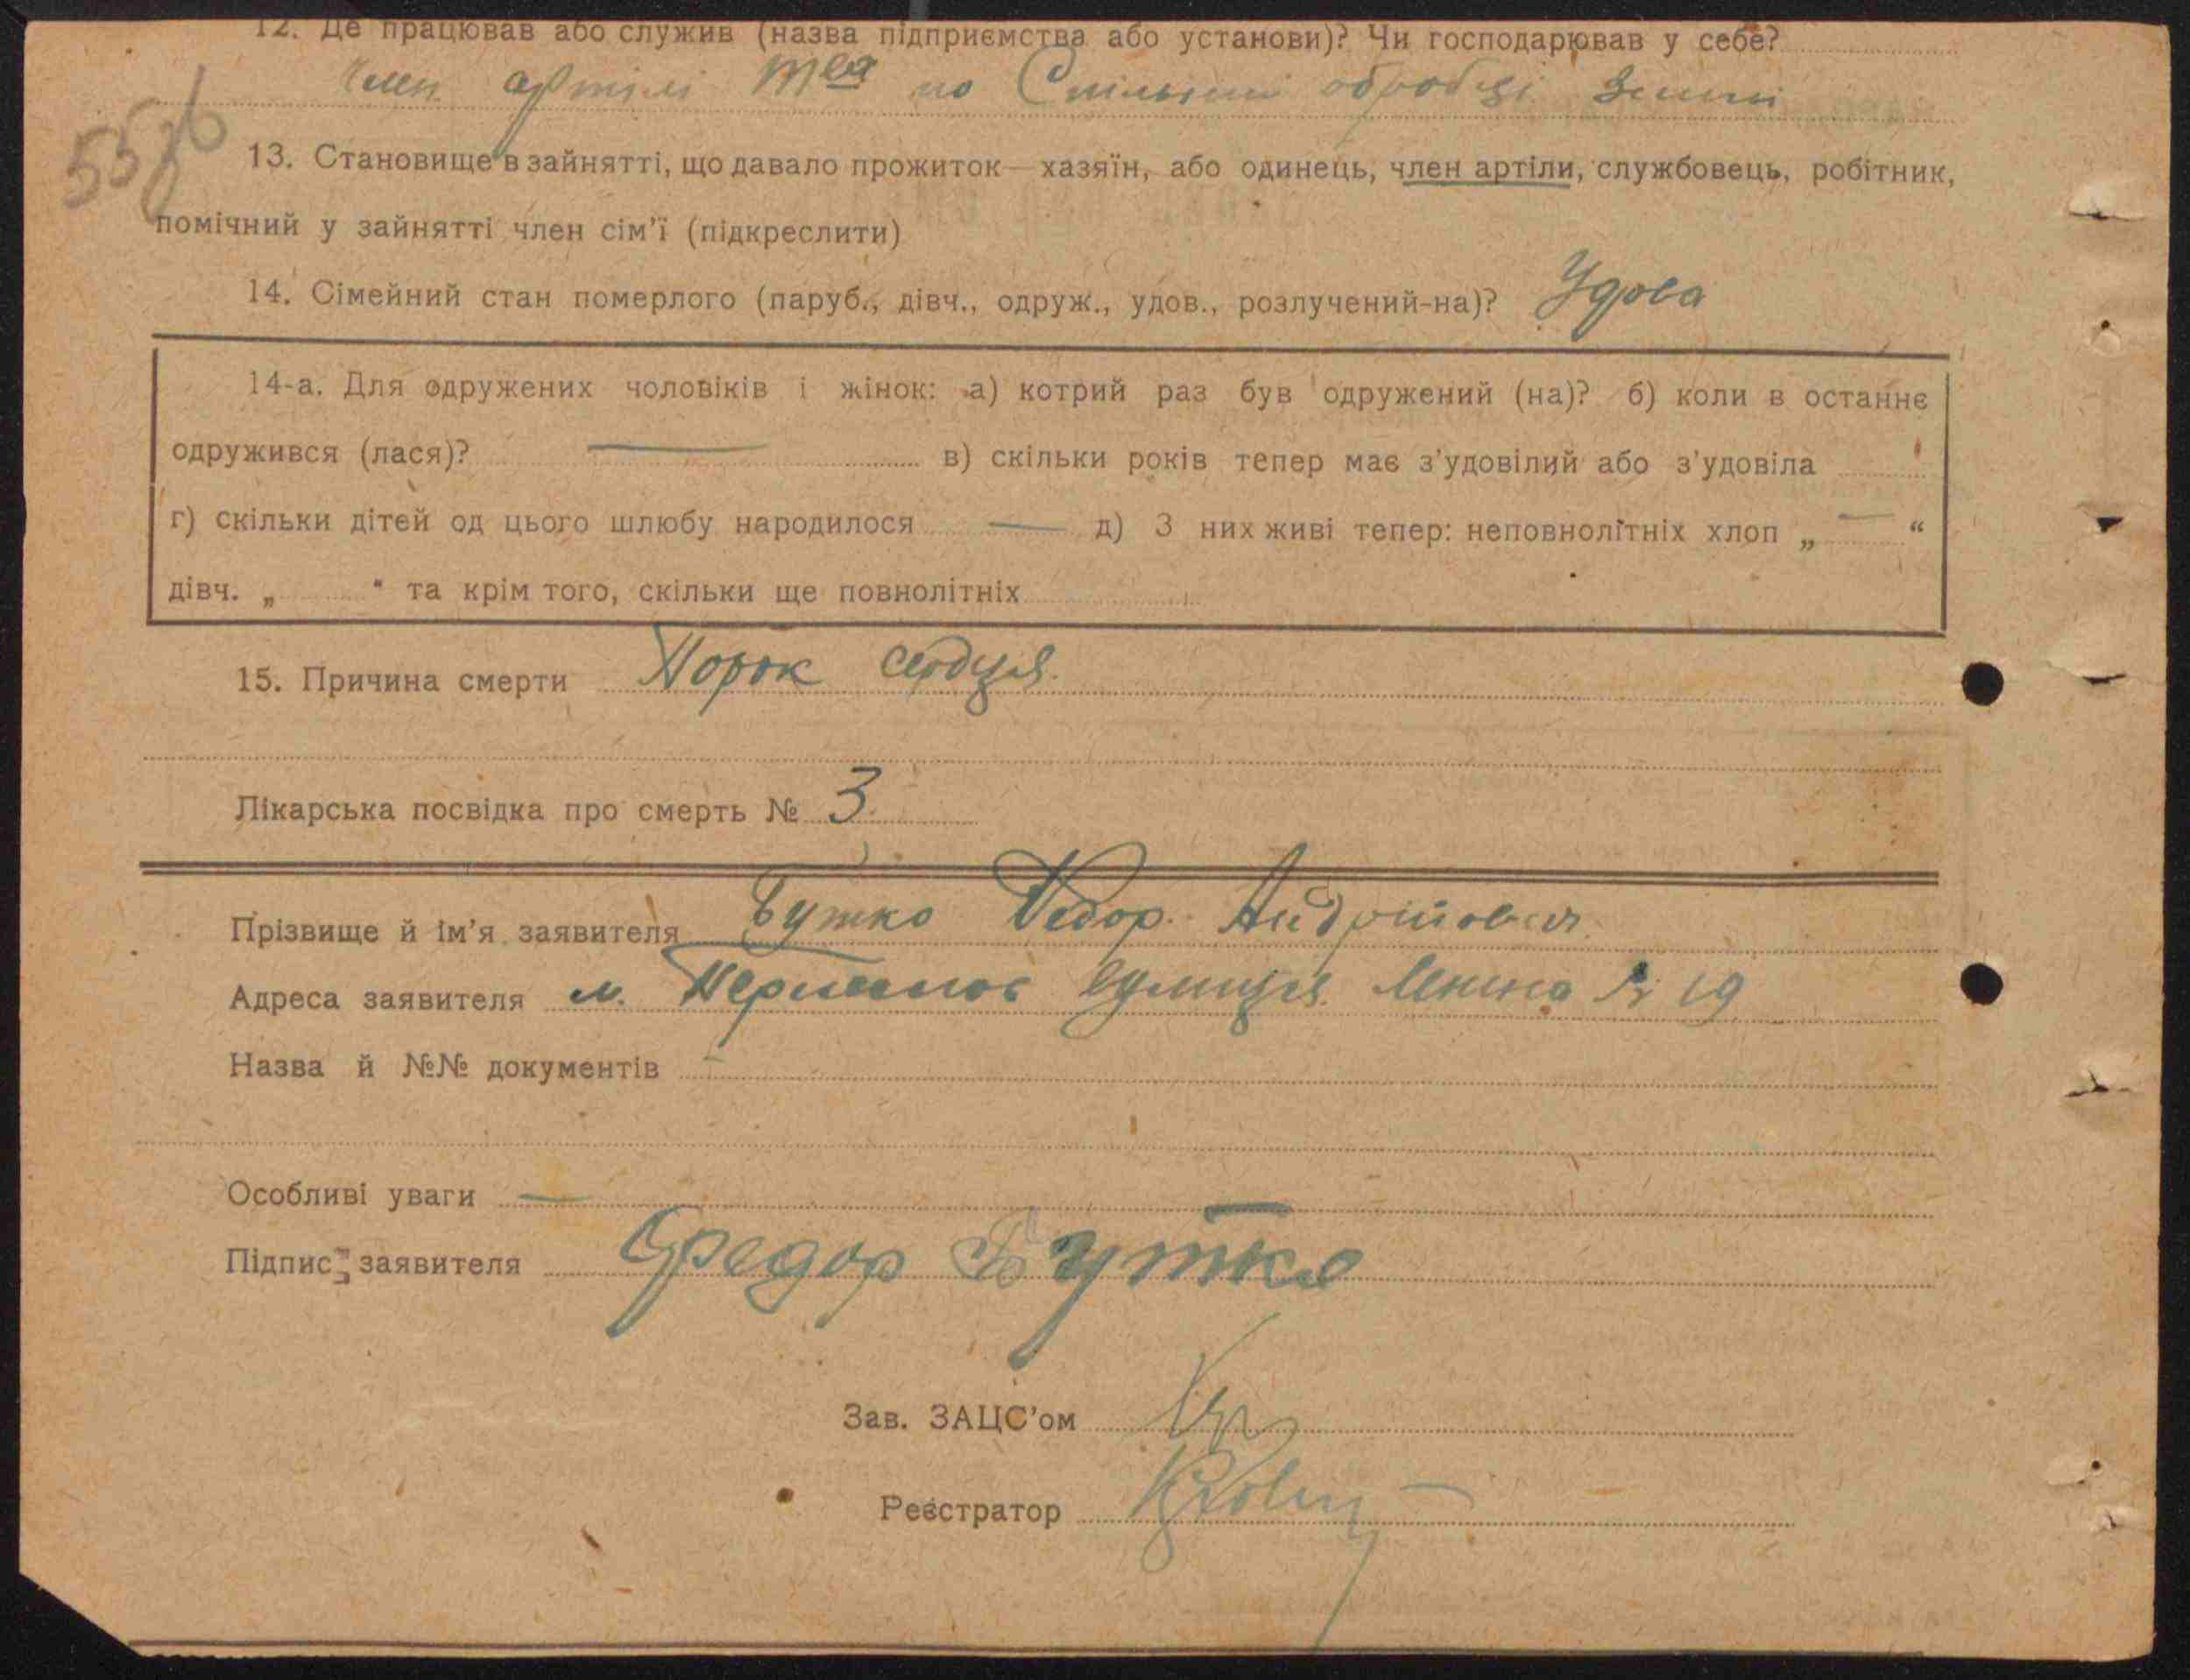 12. Де працював або служив (назва підприємства або установи)? Чи господарював у себе?
Член артілі Тва по Спільній обробці Землі
55зв
13. Становище в зайнятті, що давало прожиток—хазяїн, або одинець, член артіли, службовець, робітник,
помічний у зайнятті член сім'ї (підкреслити)
14. Сімейний стан померлого (паруб., дівч., одруж., удов., розлучений-на)? Удова
14-а. Для одружених чоловіків і жінок: а) котрий раз був одружений (на)? б) коли в останнє
одружився (лася)? — в) скільки років тепер має з'удовілий або з'удовіла
г) скільки дітей од цього шлюбу народилося — д) З них живі тепер: неповнолітніх хлоп „ — “
дівч. „ “ та крім того, скільки ще повнолітніх
15. Причина смерти Порок сердця.
Лікарська посвідка про смерть № 3.
Прізвище й ім'я заявителя Бутко Федор
Адреса заявителя м. вулиця Леніна № 19
Назва й №№ документів —
Особливі уваги —
Підпис заявителя Федор Бутко
Зав. ЗАЦС'ом
Реєстратор